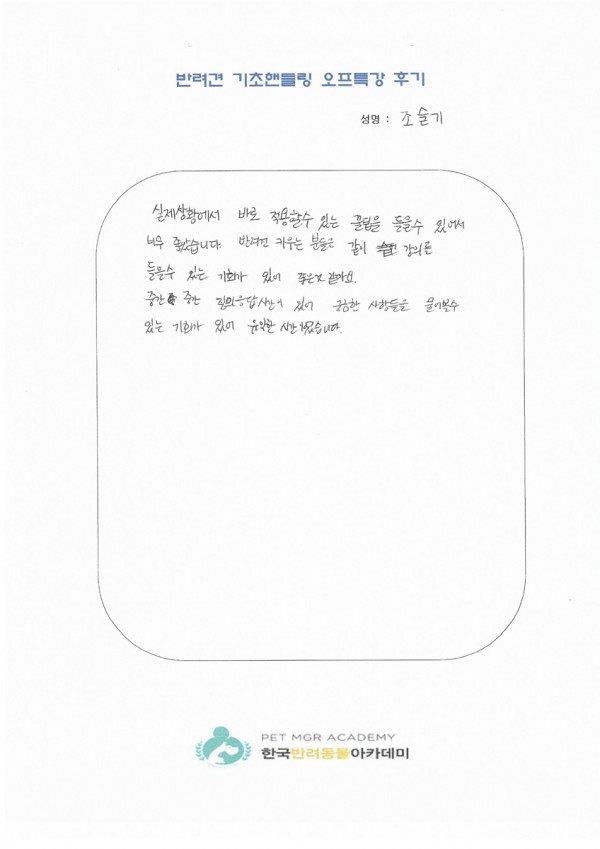 반려견 기초핸들링 오프특강 후기
성명 : 조슬기
실제상황에서 바로 적용할수 있는 꿀팁을 들을수 있어서
너무 좋았습니다. 반려견 키우는 분들은 같이 강의를
들을수 있는 기회가 있어 좋은것 같아요.
중간 중간 질의응답시간이 있어 궁금한 사항들을 물어볼수
있는 기회가 있어 유익한 시간이었습니다.
PET MGR ACADEMY
한국반려동물아카데미